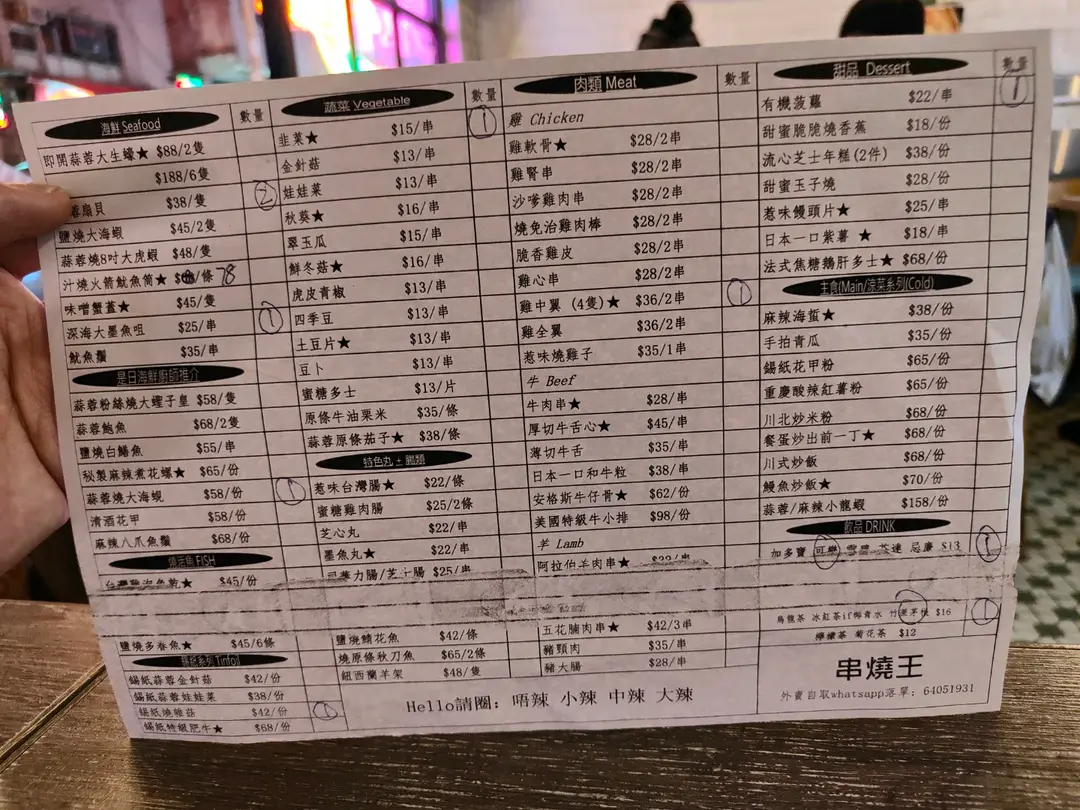 海鮮 Seafood 數量
即開蒜蓉大生蠔★ $88/2隻
$188/6隻
蓉扇貝 $38/隻 ②
鹽燒大海蝦 $45/2隻
蒜蓉燒8吋大虎蝦 $48/隻
汁燒火箭魷魚筒★ /條 78
味噌蟹蓋★ $45/隻 ①
深海大墨魚咀 $25/串
魷魚鬚 $35/串
是日海鮮廚師推介
蒜蓉粉絲燒大蟶子皇 $58/隻
蒜蓉鮑魚 $68/2隻
鹽燒白鱔魚 $55/串
秘製麻辣煮花螺★ $65/份
蒜蓉燒大海蜆 $58/份 ①
清酒花甲 $58/份
麻辣八爪魚鬚 $68/份
FISH
$45/份
鹽燒多春魚★ $45/6條
錫紙系列 Tinfoil
錫紙蒜蓉金針菇 $42/份
錫紙蒜蓉娃娃菜 $38/份
錫紙燒雜菇 $42/份 ①
錫紙特級肥牛★ $68/份
蔬菜 Vegetable 數量
韭菜★ $15/串 ①
金針菇 $13/串
娃娃菜 $13/串
秋葵★ $16/串
翠玉瓜 $15/串
鮮冬菇★ $16/串
虎皮青椒 $13/串
四季豆 $13/串
土豆片★ $13/串
豆卜 $13/串
蜜糖多士 $13/片
原條牛油粟米 $35/條
蒜蓉原條茄子★ $38/條
特色丸＋腸類
惹味台灣腸★ $22/條
蜜糖雞肉腸 $25/2條
芝心丸 $22/串
墨魚丸★ $22/串
司華力腸/芝士腸 $25/串
鹽燒鯖花魚 $42/條
燒原條秋刀魚 $65/2條
鈕西蘭羊架 $48/隻
肉類 Meat 數量
雞 Chicken
雞軟骨★ $28/2串
雞腎串 $28/2串
沙嗲雞肉串 $28/2串
燒免治雞肉棒 $28/2串
脆香雞皮 $28/2串
雞心串 $28/2串
雞中翼 (4隻)★ $36/2串 ①
雞全翼 $36/2串
惹味燒雞子 $35/1串
牛 Beef
牛肉串★ $28/串
厚切牛舌心★ $45/串
薄切牛舌 $35/串
日本一口和牛粒 $38/串
安格斯牛仔骨★ $62/份
美國特級牛小排 $98/份
羊 Lamb
阿拉伯羊肉串★
五花腩肉串★ $42/3串
豬頸肉 $35/串
豬大腸 $28/串
Hello請圈：唔辣 小辣 中辣 大辣
甜品 Dessert 數量
有機菠蘿 $22/串 ①
甜蜜脆脆燒香蕉 $18/份
流心芝士年糕(2件) $38/份
甜蜜玉子燒 $28/份
惹味饅頭片★ $25/串
日本一口紫薯 ★ $18/串
法式焦糖鵝肝多士★ $68/份
主食(Main/涼菜系列(Cold)
麻辣海蜇★ $38/份
手拍青瓜 $35/份
錫紙花甲粉 $65/份
重慶酸辣紅薯粉 $65/份
川北炒米粉 $68/份
餐蛋炒出前一丁★ $68/份
川式炒飯 $68/份
鰻魚炒飯★ $70/份
蒜蓉/麻辣小龍蝦 $158/份
飲品 DRINK
加多寶 可樂 雪碧 芬達 忌廉 $13 ①
烏龍茶 冰紅茶if椰青水 竹蔗茅根 $16 ①
檸檬茶 菊花茶 $12
串燒王
外賣自取whatsapp落單：64051931